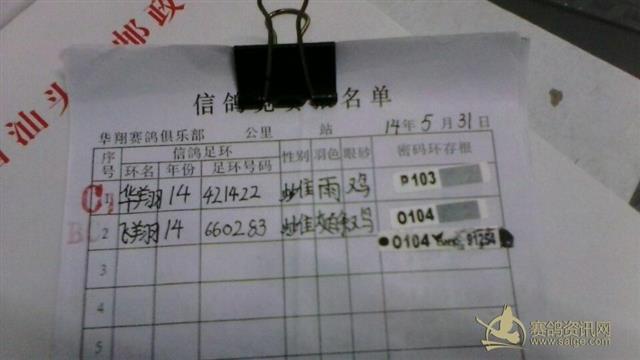 邮政
汕头
信鸽竞 名单
华翔赛鸽俱乐部 公里 站 14年5月31日
序号 信鸽足环 性别 羽色 眼砂 密码环存根
环名 年份 足环号码
1 华翔 14 421422 雨 鸡 P103
2 飞翔 14 660283 O104
O104
3
4
5
赛鸽资讯网
www.saige.com